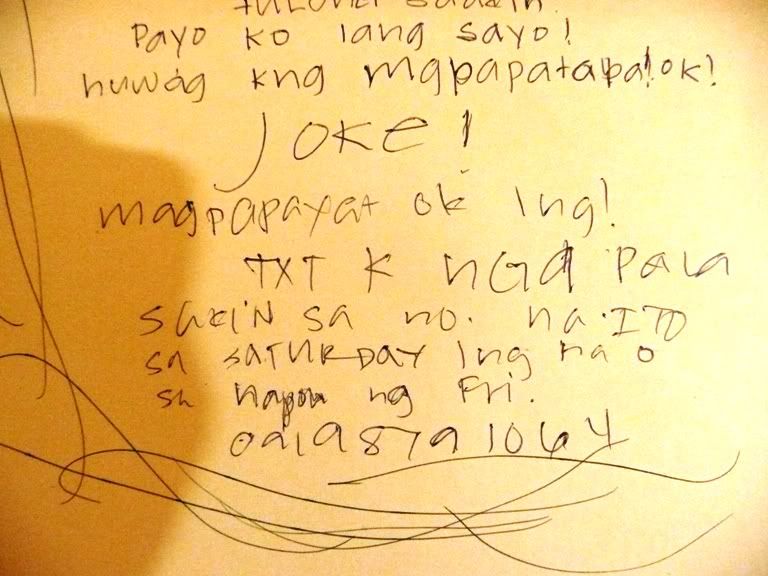 Payo ko lang sayo!
huwag kng mgpapataba!ok!
JOKE!
magpapayat ok lng!
TXT K NGA PALA
SAKiN sa no. na ITO
sa SATURDAY lng ha o
sa hapon ng Fri.
09198791064